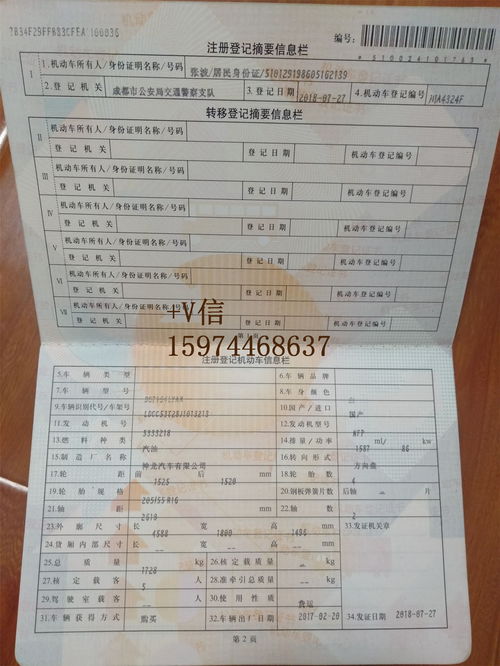 7B34F29FFBS3CFEA 10003G
编号:
*510024101763*
注册登记摘要信息栏
I 1.机动车所有人/身份证明名称/号码 张波/居民身份证/510129198605162139
2.登记机关 成都市公安局交通警察支队 3.登记日期 2018-07-27 4.机动车登记编号 川A4324F
转移登记摘要信息栏
II 机动车所有人/身份证明名称/号码
登记机关 登记日期 机动车登记编号
III 机动车所有人/身份证明名称/号码
登记机关 登记日期 机动车登记编号
IV 机动车所有人/身份证明名称/号码
登记机关 登记日期 机动车登记编号
V 机动车所有人/身份证明名称/号码
登记机关 登记日期 机动车登记编号
VI 机动车所有人/身份证明名称/号码
登记机关 登记日期 机动车登记编号
VII 机动车所有人/身份证明名称/号码
登记机关 登记日期 机动车登记编号
+V信
第1页
15974468637
注册登记机动车信息栏
5.车辆类型 6.车辆品牌
7.车辆型号 8.车身颜色 白
9.车辆识别代号/车架号 10.国产/进口 国产
11.发动机号 5333218 12.发动机型号 NFP
13.燃料种类 汽油 14.排量/功率 1587 ml/ 86 kw
15.制造厂名称 神龙汽车有限公司 16.转向形式 方向盘
17.轮距 前 1525 后 1520 mm 18.轮胎数 4
19.轮胎规格 205/55 R16 20.钢板弹簧片数 后轴 片
21.轴距 mm 22.轴数 2
23.外廓尺寸 长 4588 宽 1800 高 1496 mm 33.发证机关章
24.货厢内部尺寸 长 宽 高 mm
25.总质量 1728 kg 26.核定载质量 kg
27.核定载客 5 人 28.准牵引总质量 kg
29.驾驶室载客 人 30.使用性质
31.车辆获得方式 购买 32.车辆出厂日期 2017-02-20 34.发证日期 2018-07-27
第2页